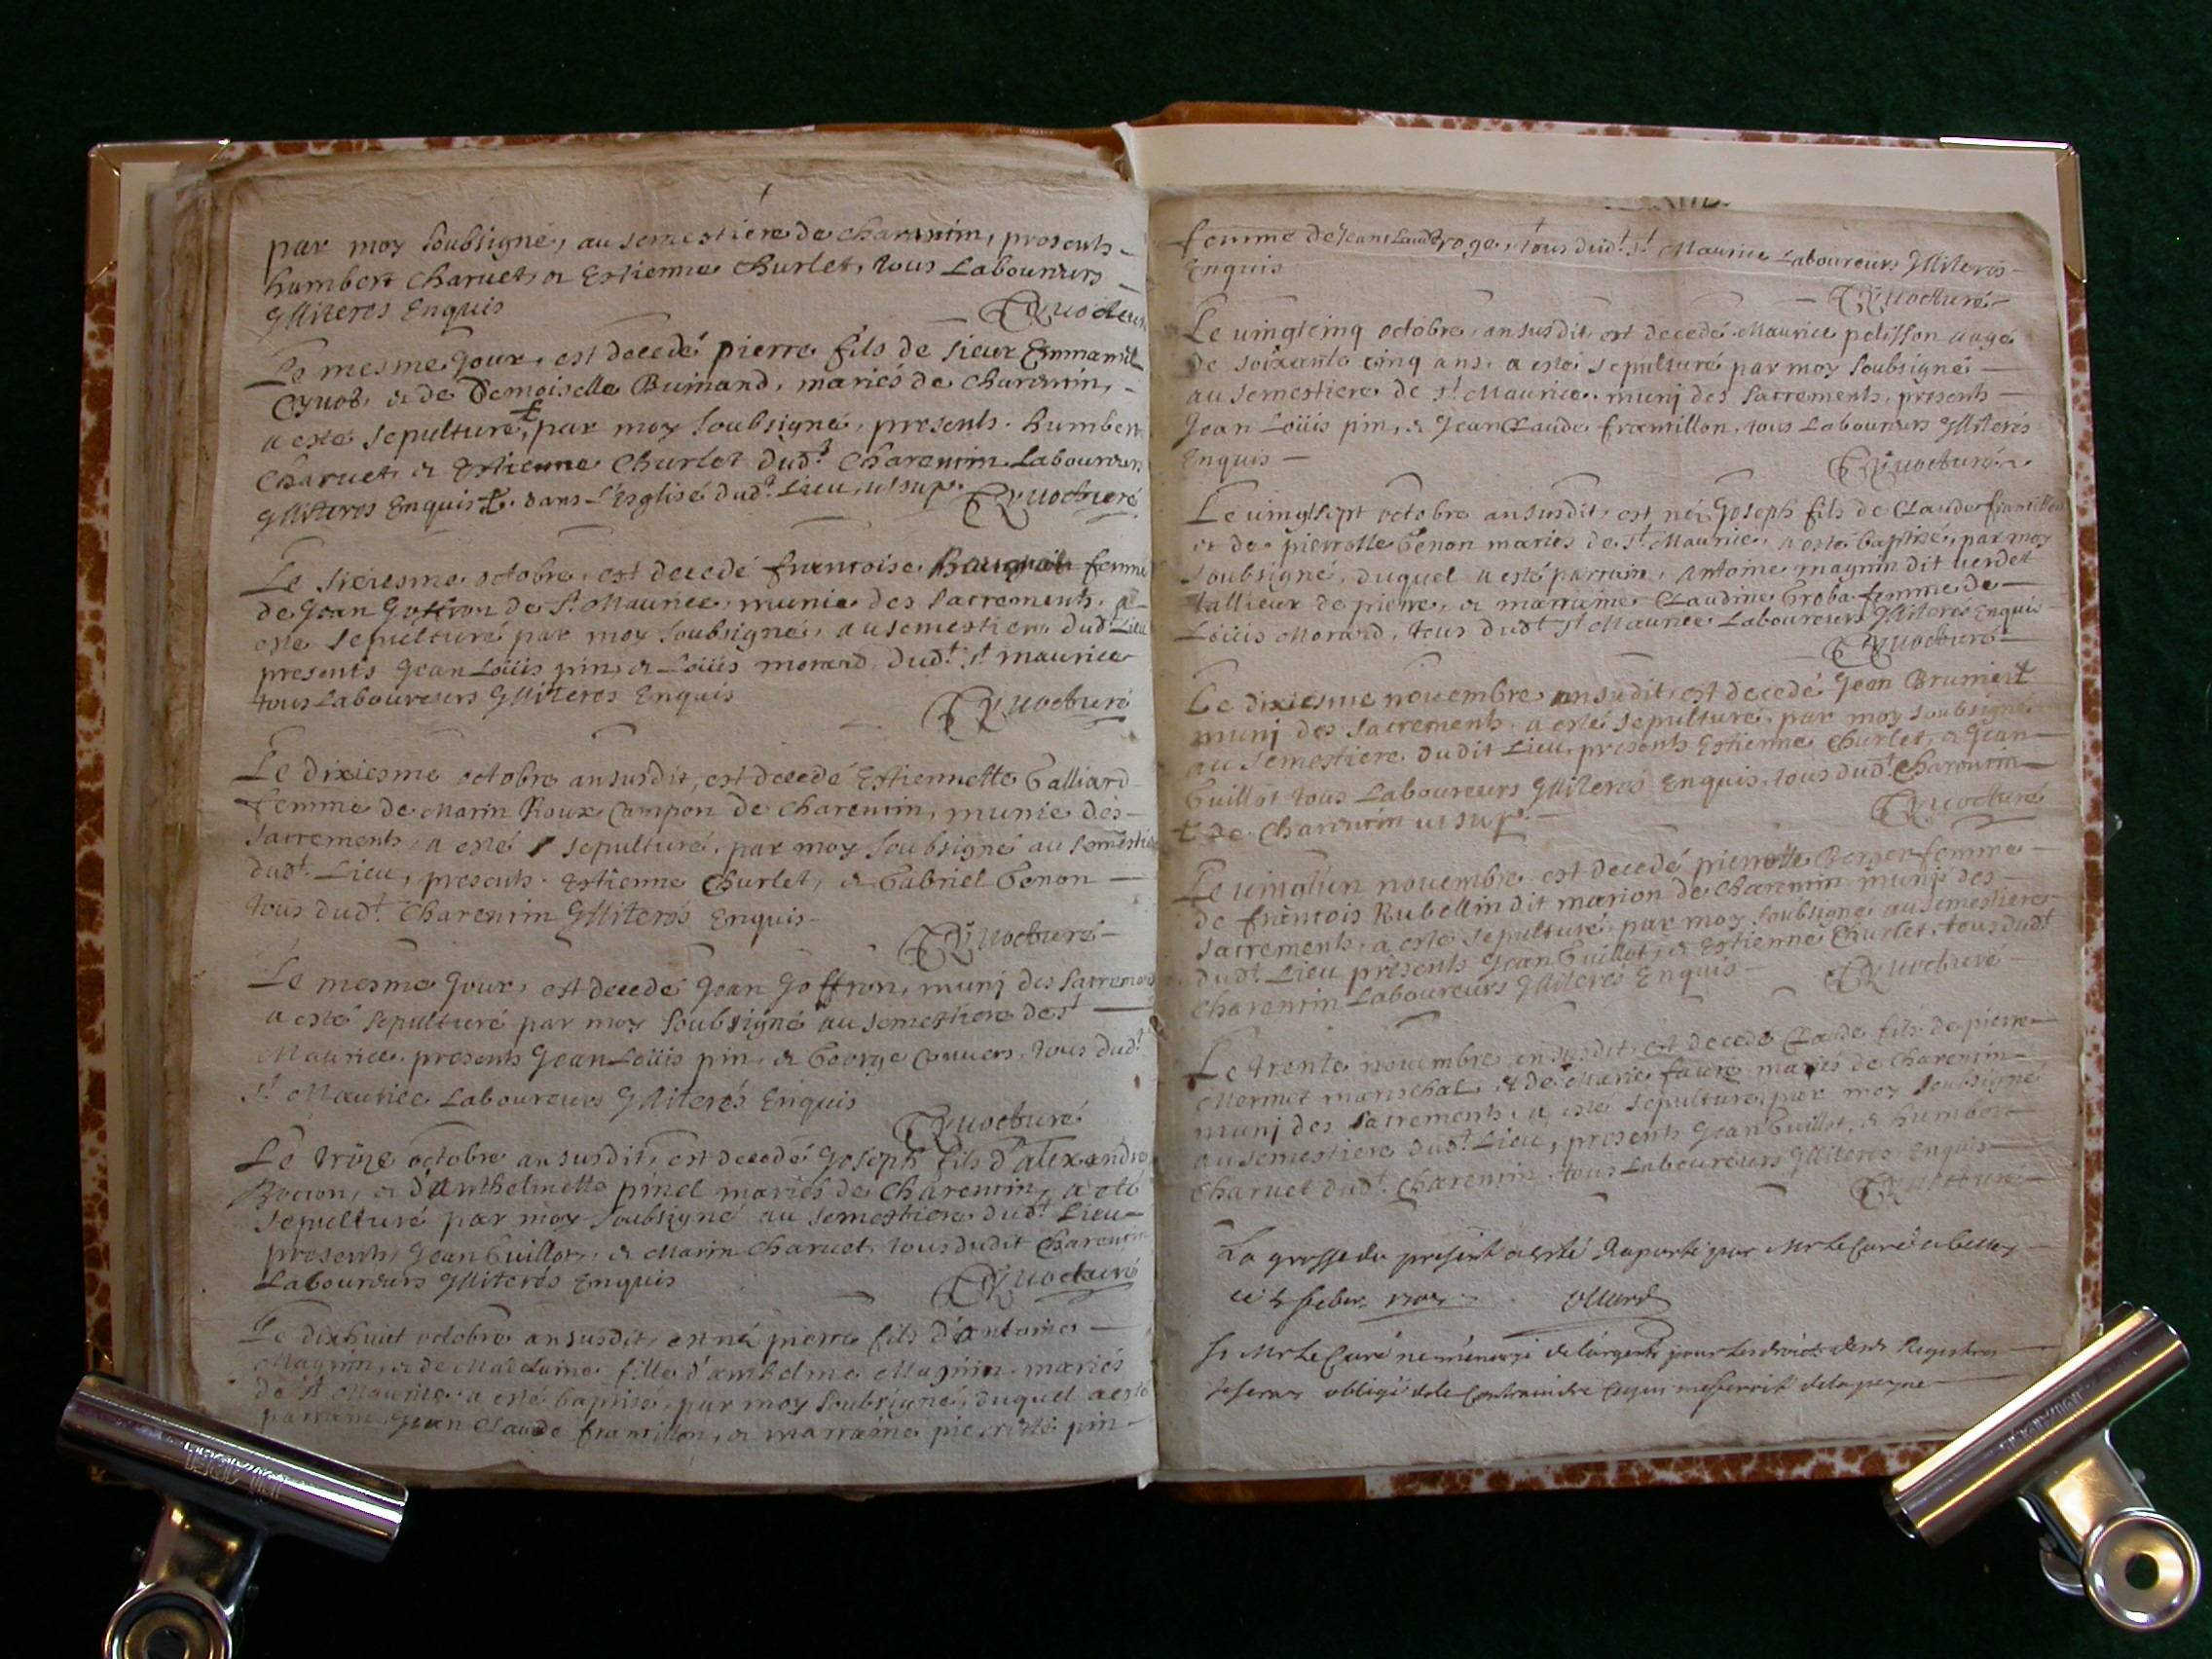 par moy soubsigné, au semestiere de charenin, presents
humbert Charuet, & Estienne Churlet, tous Laboureurs
Illiteres Enquis
Le mesme Jour, est decedé pierre fils de sieur Emmanuel
& de Demoiselle Buinand, mariés de Charenin,
a esté sepulturé, par moy soubsigné, presents humbert
Charuet, & Estienne Churlet dudt Charenin Laboureurs
Illiteres Enquis. dans L'Esglise dudt Lieu, ut sup.
Le octobre, est decedé francoise femme
de Jean Goffron de St Maurice, munie des sacrements, a
esté sepulturé par moy soubsigné, au semestiere dudt Lieu
presents Jean Loüis pin, & Loüis morard, dudt St maurice
tous Laboureurs Illiteres Enquis
Le dixiesme octobre an susdit, est decedé Estiennette Galliard
femme de Marin Roux Campon de Charenin, munie des
sacrements, a esté sepulturé, par moy soubsigné au semestiere
dudt Lieu, presents Estienne Churlet, & Gabriel Genon
tous dudt Charenin Illiterés Enquis
Le mesme Jour, est decedé Jean Goffron, munj des sacrements
a esté sepulturé par moy soubsigné au semestiere de St
Maurice, presents Jean Loüis pin, & George tous dudt
St Maurice Laboureurs Illiterés Enquis
Le tréze octobre an susdit, est decedé Joseph fils d'alexandre
& d'Anthelmette pinel mariés de Charenin, a esté
sepulturé par moy soubsigné au semestiere dudt Lieu
presents Jean Guillot, & Marin Charuet, tous dudit Charenin
Laboureurs Illiteres Enquis
Le dixhuict octobre an susdit, est né pierre fils d'antoine
Magnin, & de Madelaine fille d'anthelme Magnin mariés
de St Maurice a esté baptisé, par moy soubsigné, duquel a esté
parrain Jean Claude framillon, & marraine pierrotte pin
femme de Jean Laude roge, tous dudt St Maurice Laboureurs Illiteres
Enquis
Le uingtcinq octobre, an susdit, est decedé Maurice pelisson aagé
de soixante cinq ans, a esté sepulturé par moy soubsigné
au semestiere de St Maurice, munj des sacrements, presents
Jean Loüis pin, & Jean Claude framillon, tous Laboureurs Illiterés
Enquis
Le uingtsept octobre an susdit, est né Joseph fils de Claude framillon
et de pierrotte Genon mariés de St Maurice, a esté baptisé, par moy
soubsigné, duquel a esté parrain, Antoine magnin dit uerdet
tallieur de pierre, & marraine Claudine Groba femme de
Loüis Morard, tous dudt St Maurice Laboureurs Illiterés Enquis
Le dixiesme nouembre an susdit, est decedé Jean Brunier
munj des sacrements, a esté sepulturé, par moy soubsigné
au semestiere dudit Lieu, presents Estienne Churlet, & Jean
Guillot tous Laboureurs Illiterés Enquis, tous dudt Charenin
de Charenin ut sup.
Le uingtun nouembre est decedé pierrotte Berger femme
de francois Rubellin dit marion de Charenin munie des
sacrements, a esté sepulturé, par moy soubsigné au semestiere
dudt Lieu presents Jean Guillot, & Estienne Churlet, tous dudt
Charenin Laboureurs Illiterés Enquis
Le trente nouembre an susdit, est decedé Claude fils de pierre
Mermet mareschal, & de Marie faure mariés de Charenin
munj des sacrements, a esté sepulturé, par moy soubsigné
au semestiere dudt Lieu, presents Jean Guillot, & humbert
Charuet dudt Charenin, tous Laboureurs Illiteres Enquis
La grosse du present a esté Raporté par Mr Le Curé a belley
ce
Si Mr Le Curé ne m'enuoyé de l'argent pour les droicts desd. Registres
Je seray obligé de le Contraindre